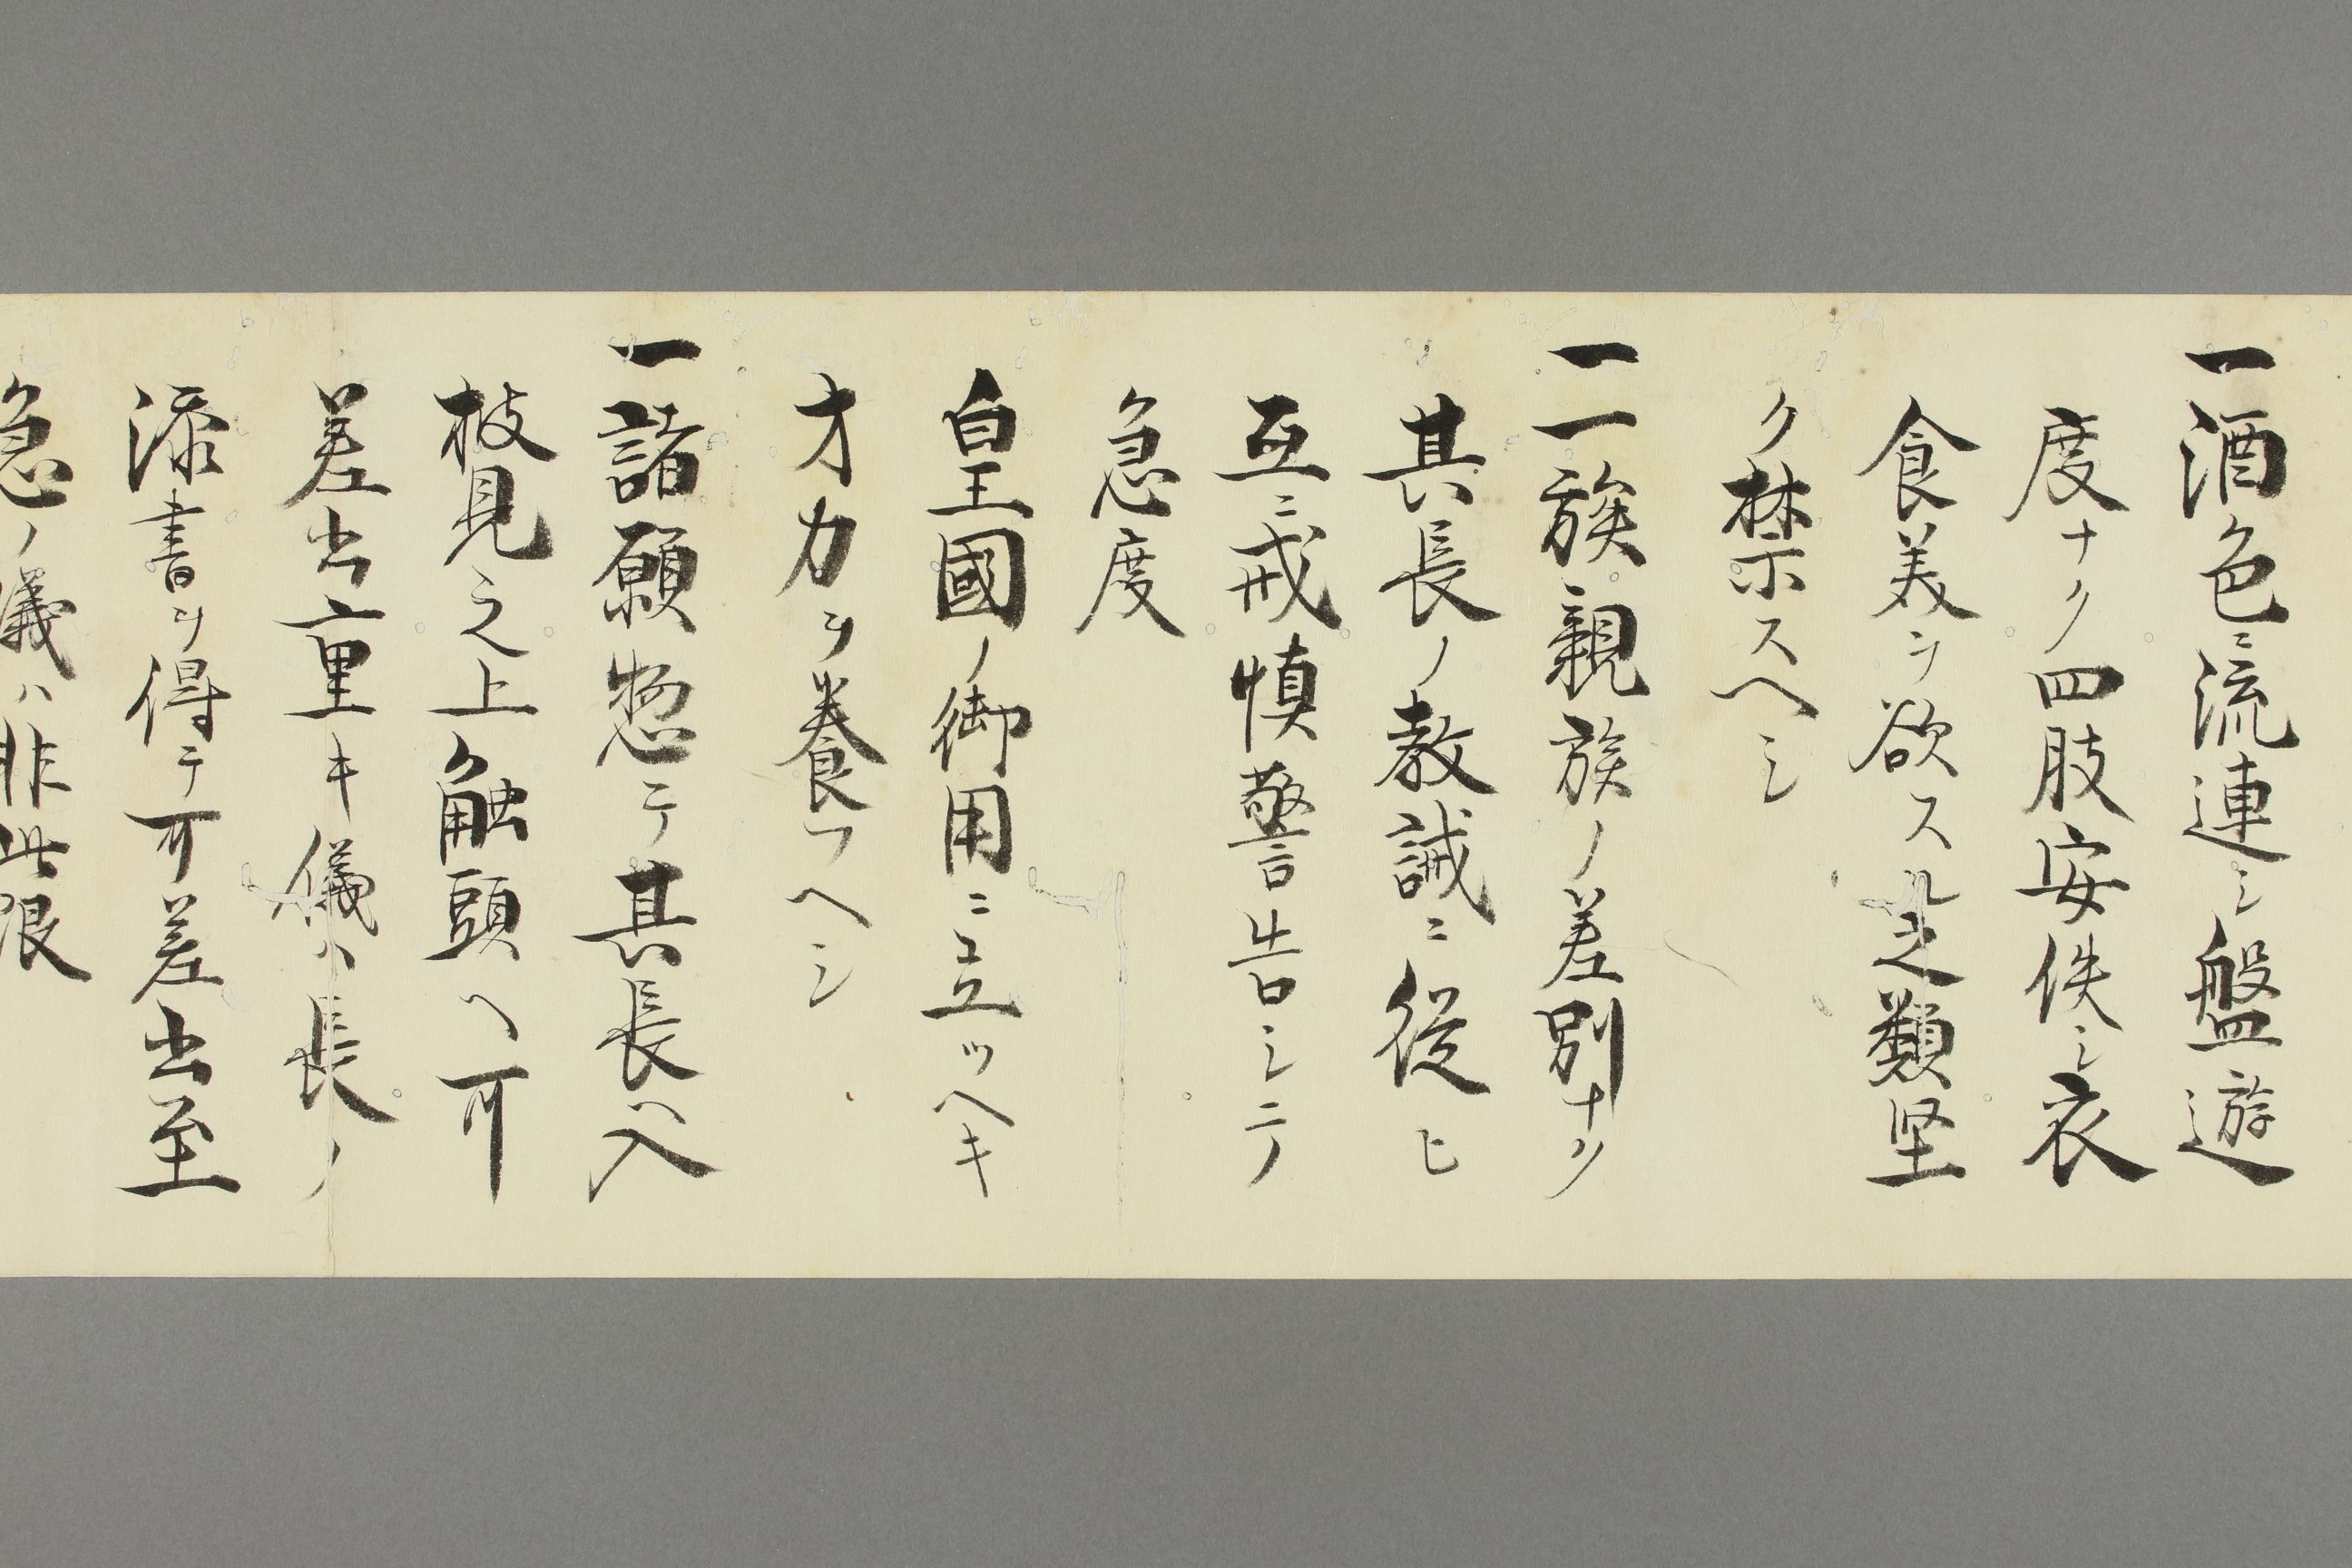 一酒色ニ流連シ盤遊
度ナク四肢安佚シ衣
食美ヲ欲スル之類堅
ク禁スヘシ
一一族親族ノ差別ナク
其長ノ教誡ニ従ヒ
互ニ戒慎警告シテ
急度
皇國ノ御用ニ立ツヘキ
才力ヲ養フヘシ
一諸願惣テ其長ヘ入
披見之上触頭ヘ可
差出重キ儀ハ長ノ
添書ヲ得テ可差出至
急ノ儀ハ非此限